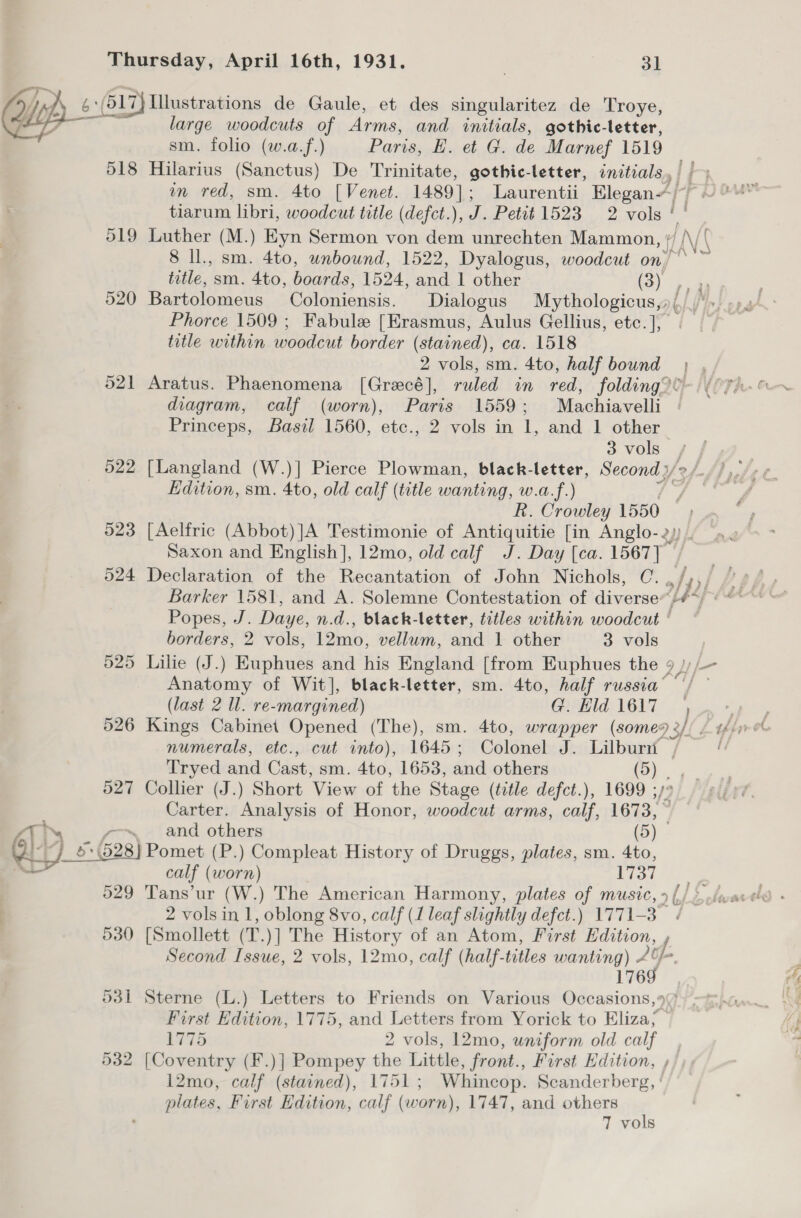 Thursday, April 16th, 1931. 31
517 Illustrations de Gaule, et des singularitez de Troye,
large woodcuts of Arms, and initials, gothic-letter,
sm. folio (w.a.f.) Paris, E. et G. de Marnef 1519
518 Hilarius (Sanctus) De Trinitate, gothic-letter, initials,
in red, sm. 4to [Venet. 1489]; Laurentii Elegan-
tiarum libri, woodcut title (defct.), J. Petit 1523 2 vols
519 Luther (M.) Eyn Sermon von dem unrechten Mammon,
8 ll., sm. 4to, unbound, 1522, Dyalogus, woodcut on
title, sm. 4to, boards, 1524, and 1 other (3)
520 Bartolomeus Coloniensis. Dialogus Mythologicus,
Phorce 1509; Fabulæ [Erasmus, Aulus Gellius, etc.],
title within woodcut border (stained), ca. 1518
2 vols, sm. 4to, half bound
521 Aratus. Phaenomena [Græcé], ruled in red, folding
diagram, calf (worn), Paris 1559; Machiavelli
Princeps, Basil 1560, etc., 2 vols in 1, and 1 other
3 vols
522 [Langland (W.)] Pierce Plowman, black-letter, Second
Edition, sm. 4to, old calf (title wanting, w.a.f.)
R. Crowley 1550
523 [Aelfric (Abbot)]A Testimonie of Antiquitie [in Anglo-
Saxon and English], 12mo, old calf J. Day [ca. 1567]
524 Declaration of the Recantation of John Nichols, C.
Barker 1581, and A. Solemne Contestation of diverse
Popes, J. Daye, n.d., black-letter, titles within woodcut
borders, 2 vols, 12mo, vellum, and 1 other 3 vols
525 Lilie (J.) Euphues and his England [from Euphues the
Anatomy of Wit], black-letter, sm. 4to, half russia
(last 2 ll. re-margined) G. Eld 1617
526 Kings Cabinet Opened (The), sm. 4to, wrapper (some
numerals, etc., cut into), 1645; Colonel J. Lilburn
Tryed and Cast, sm. 4to, 1653, and others (5)
527 Collier (J.) Short View of the Stage (title defct.), 1699;
Carter. Analysis of Honor, woodcut arms, calf, 1673,
and others (5)
528 Pomet (P.) Compleat History of Druggs, plates, sm. 4to,
calf (worn) 1737
529 Tans'ur (W.) The American Harmony, plates of music,
2 vols in 1, oblong 8vo, calf (1 leaf slightly defct.) 1771-3
530 [Smollett (T.)] The History of an Atom, First Edition,
Second Issue, 2 vols, 12mo, calf (half-titles wanting)
1769
531 Sterne (L.) Letters to Friends on Various Occasions,
First Edition, 1775, and Letters from Yorick to Eliza,
1775 2 vols, 12mo, uniform old calf
532 [Coventry (F.)] Pompey the Little, front., First Edition,
12mo, calf (stained), 1751; Whincop. Scanderberg,
plates, First Edition, calf (worn), 1747, and others
7 vols